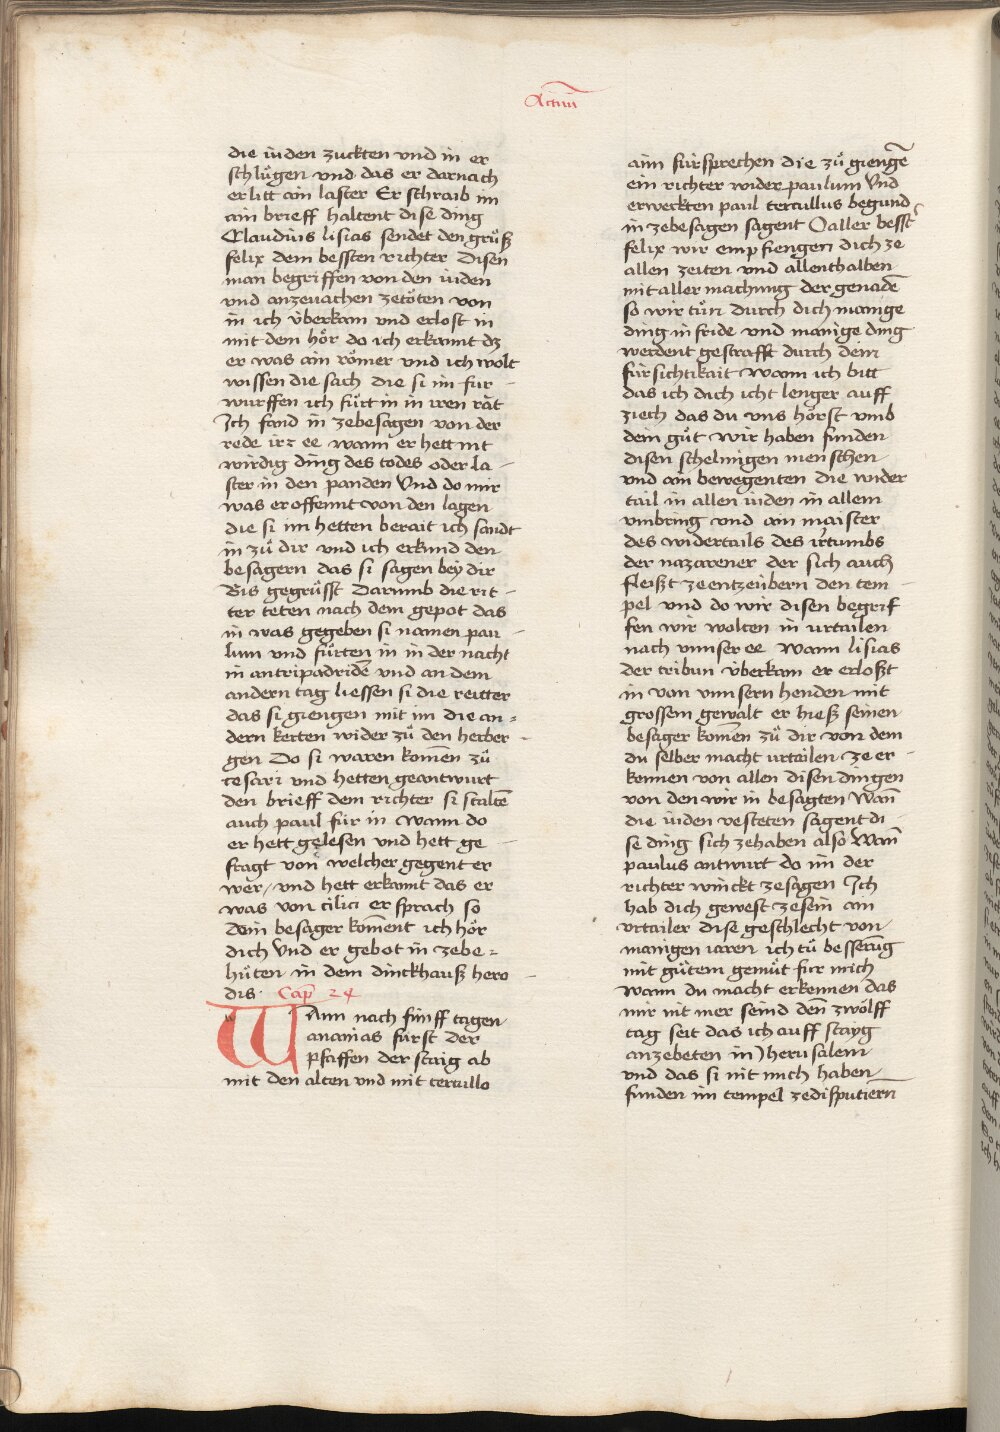 Actuu̅
die iuden zuckten vnd in er
schlu̇gen vnd das er darnach
erlitt ain laster Er schraib im
ain brieff haltent dise ding
Claudius lisias sendet den gru̇ß
felix dem bessten richter Disen
man begriffen von den iuden
vnd anzeuachen zetöten von
in ich v̇berkam vnd erlost in
mit dem hör do ich erkannt dz
er was ain römer vnd ich wolt
wissen die sach die si im fur
wurffen ich fu̇rt in in iren rät
Ich fand in zebesagen von der
rede irz ee wann er hett nit
wirdig ding des todes oder la-
ster in den panden Vnd do mir
was er offennt von den lagen
die si im hetten berait ich sandt
in zu̇ dir vnd ich erkund den
besagern das si sagen bey dir
Bis gegru̇sst Darumb die rit-
ter teten nach dem gepot das
in was gegeben si namen pau-
lum vnd fu̇rten in in der nacht
in antripadride̅ vnd an dem
andern tag liessen si die reitter
das si giengen mit im die an=
dern kerten wider zu̇ den herber-
gen Do si waren kome̅n zu̇
cesari vnd hetten geantwurt
den brieff dem richter si stalte̅
auch paul fur in wann do
er hett gelesen vnd hett ge-
fragt von welcher gegent er
wer / vnd hett erkannt das er
was von cilici er sprach so
dein besager kome̅nt ich hör
dich Vnd er gebot in zebe=
hu̇ten in dem dinckhauß hero-
dis. Cap̅ 24
WAnn nach fünff tagen
ananias fu̇rst der
pfaffen der staig ab
mit den alten vnd mit tertullo
ainn fu̇rsprechen die zu̇ gienge̅
ein richter wider paulum Vnd
erweckten paul tertullus begund
in zebesagen sagent O aller besst
felix wir empfiengen dich ze
allen zeiten vnd allenthalben
mit aller machung der genade̅
so wir tu̇n durch dich manige
ding in fride vnd manige ding
werdent gestrafft durch dein
fu̇rsichtikait Wann ich bitt
das ich dich icht lenger auff
ziech das du vns hörst vmb
dein gu̇t wir haben funden
disen schelmigen menschen
vnd ain bewegenten die wider
tail in allen iuden in allem
vmbring vnd ain maister
des widertails des irrtumbs
der nazarener der sich auch
fleißt zeentzeu̇bern den tem-
pel vnd do wir disen begrif
fen wir wolten in vrtailen
nach vnnser ee Wann lisias
der tribun v̇berkam er erloßt
in von vnnsern henden mit
grossem gewalt er hieß seinen
besager kome̅n zu̇ dir von dem
du selber macht vrtailen ze er-
kennen von allen disen dingen
von den wir in besagten Wan̅
die iuden vesteten sagent di-
se ding sich zehaben also Wan̅
paulus antwurt do im der
richter winckt zesagen Ich
hab dich gewest zesein ain
vrtailer dise geschlecht von
manigen iaren ich tu̇ besseru̅g
mit gu̇tem gemu̇t fur mich
wann du macht erkennen das
mir nit mer seind den̅ zwölff
tag seit das ich auff stayg
anzebeten in Jherusalem
vnd das si nit mich haben
funden im tempel zedisputiern